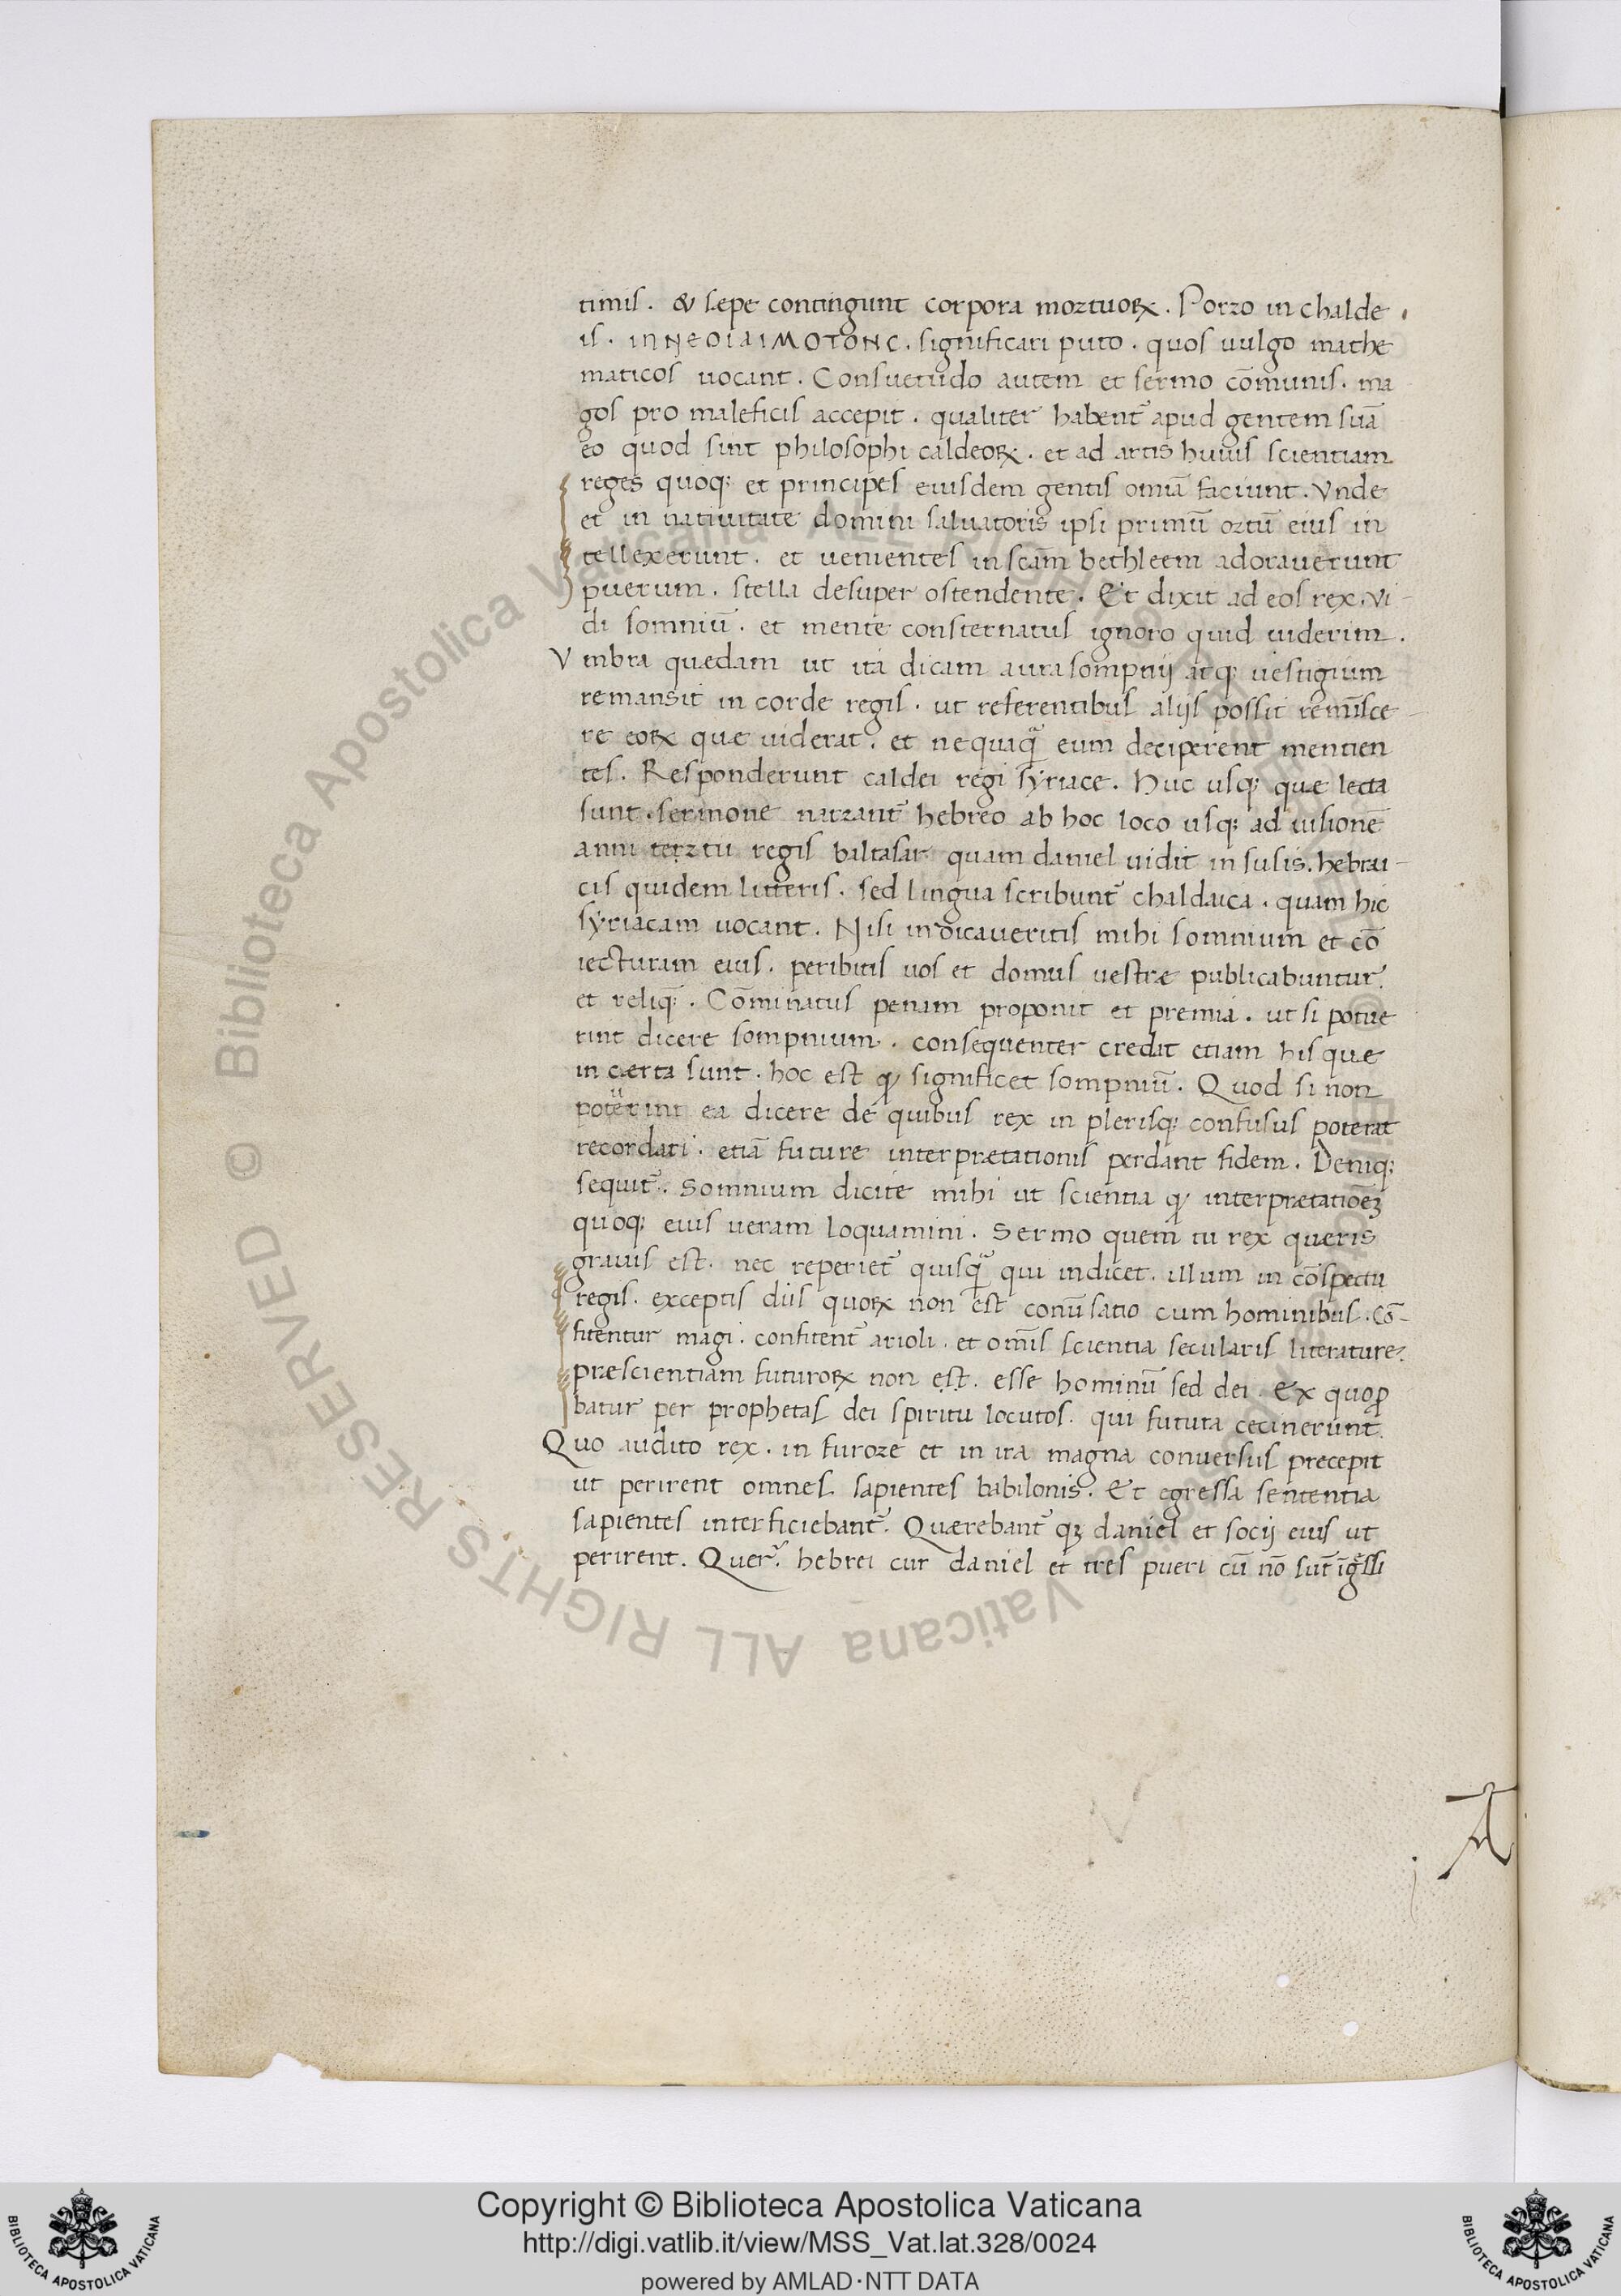 timis. & sepe contingunt corpora mortuoꝝ. Porro in chalde
is. INNEOIAIMOTONC. significari puto. quos uulgo mathe
maticos uocant. Consuetudo autem et sermo cōmunis. ma
gos pro maleficis accepit. qualiter habent᷑ apud gentem suā
eo quod sint philosophi caldeoꝝ. et ad artis huius scientiam
reges quoqꝫ et principes eiusdem gentis omīa faciunt. Vnde
et in natiuitate domini saluatoris ipsi primū ortū eius in
tellexerunt. et uenientes in scām bethleem adorauerunt
puerum. stella desuper ostendente. Et dixit ad eos rex. Vi-
di somniū. et mente consternatus ignoro quid uiderim.
Vmbra quedam ut ita dicam aura sompnij atqꝫ uestigium
remansit in corde regis. ut referentibus alijs possit reminisce-
re eoꝝ que uiderat. et nequaqᷓ eum deciperent mentien
tes. Responderunt caldei regi syriace. Huc usqꝫ que lecta
sunt. sermone narrant᷑ hebreo ab hoc loco usqꝫ ad uisionē
anni tertii regis baltasar quam daniel uidit in susis. hebrai-
cis quidem litteris. sed lingua scribunt᷑ chaldaica. quam hic
syriacam uocant. Nisi indicaueritis mihi somnium et cō
iecturam eius. peribitis uos et domus uestræ publicabuntur.
et reliqꝫ. Cōminatus penam proponit et premia. ut si potue
rint dicere sompnium. consequenter credat etiam his que
incerta sunt. hoc est qͥ significet sompniū. Quod si non
potuerint ea dicere de quibus rex in plerisqꝫ confusus poterat
recordari. etiā future interpretationis perdant fidem. Deniqꝫ
sequit᷑. Somnium dicite mihi ut scientia qͥ interpretatiōeꝫ
quoqꝫ eius ueram loquamini. Sermo quem tu rex queris
grauis est. nec reperiet᷑ quisqᷓ qui indicet. illum in cōspectu
regis. exceptis diis quoꝝ non est conūsatio cum hominibus. Cō-
fitentur magi. confitent᷑ arioli. et omīs scientia secularis literature.
præscientiam futuroꝝ non est. esse hominū sed dei. Ex quo ꝓ
batur per prophetas dei spiritu locutos. qui futura cecinerunt.
Quo audito rex. in furore et in ira magna conuersus precepit
ut perirent omnes sapientes babilonis. Et egressa sententia
sapientes interficiebant᷑. Quærebant᷑ qꝫ daniel et socij eius ut
perirent. Quer᷑. hebrei cur daniel et tres pueri cū nō sūt īgᷓssi
Copyright © Biblioteca Apostolica Vaticana
http://digi.vatlib.it/view/MSS_Vat.lat.328/0024
powered by AMLAD·NTT DATA
BIBLIOTECA APOSTOLICA VATICANA
BIBLIOTECA APOSTOLICA VATICANA
© Biblioteca Apostolica Vaticana ALL RIGHTS RESERVED
© Biblioteca Apostolica Vaticana ALL RIGHTS RESERVED